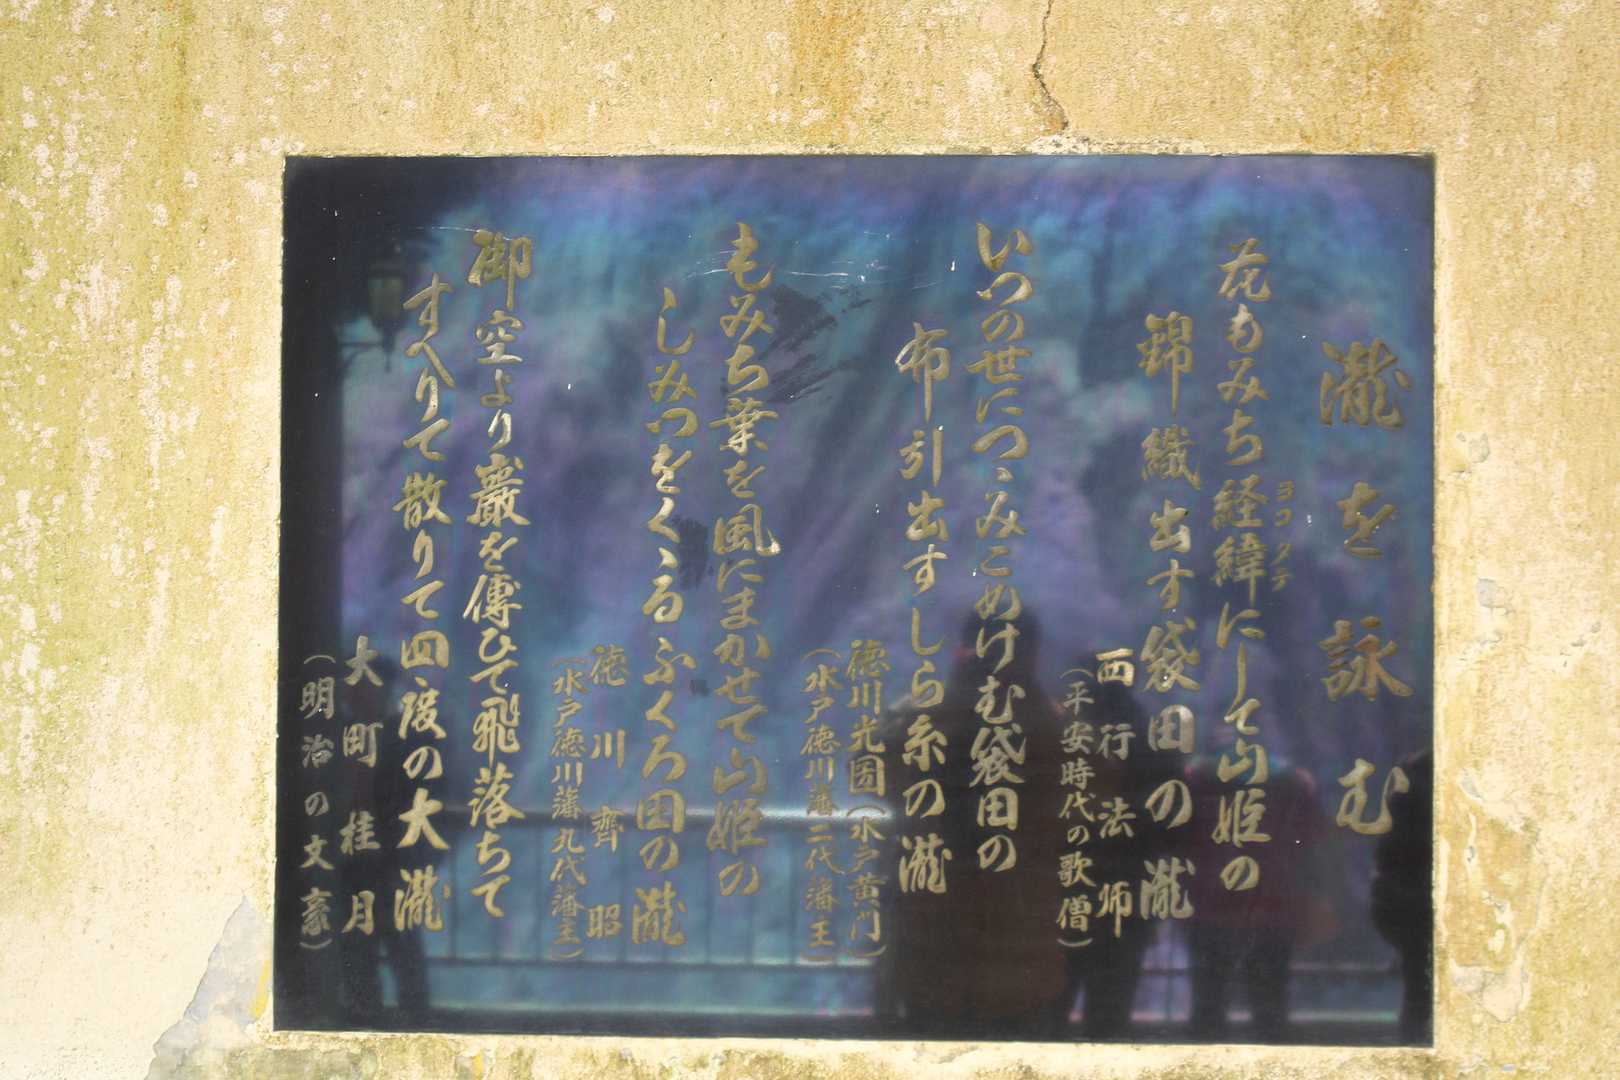 瀧を詠む
花もみち経緯にして山姫の
ヨコタテ
錦織出す袋田の瀧
西行法师
（平安時代の歌僧）
いつの世につゝみこめけむ袋田の
布引出すしら糸の瀧
徳川光圀（水戸黄門）
（水戸徳川藩二代藩王）
もみち葉を風にまかせて山姫の
しみつをくゝるふくろ田の瀧
徳川齊昭
（水戸徳川藩九代藩主）
御空より巖を傳ひて飛落ちて
すべりて散りて四度の大瀧
大町桂月
（明治の文豪）